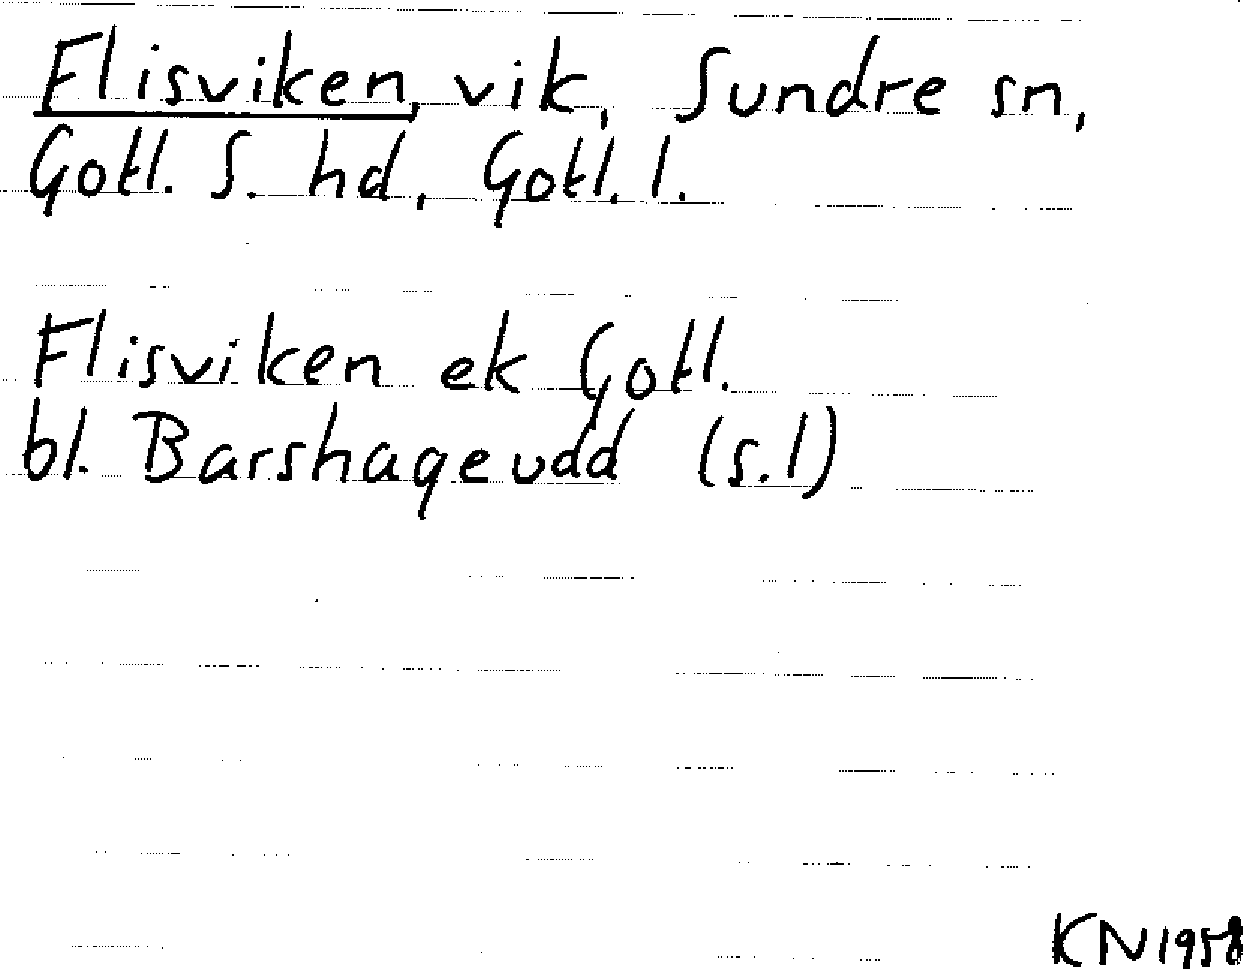 Flisviken, vik, Sundre sn,
Gotl. S. hd, Gotl. l.
Flisviken ek Gotl.
bl. Barshageudd (s. l)
KN 1958